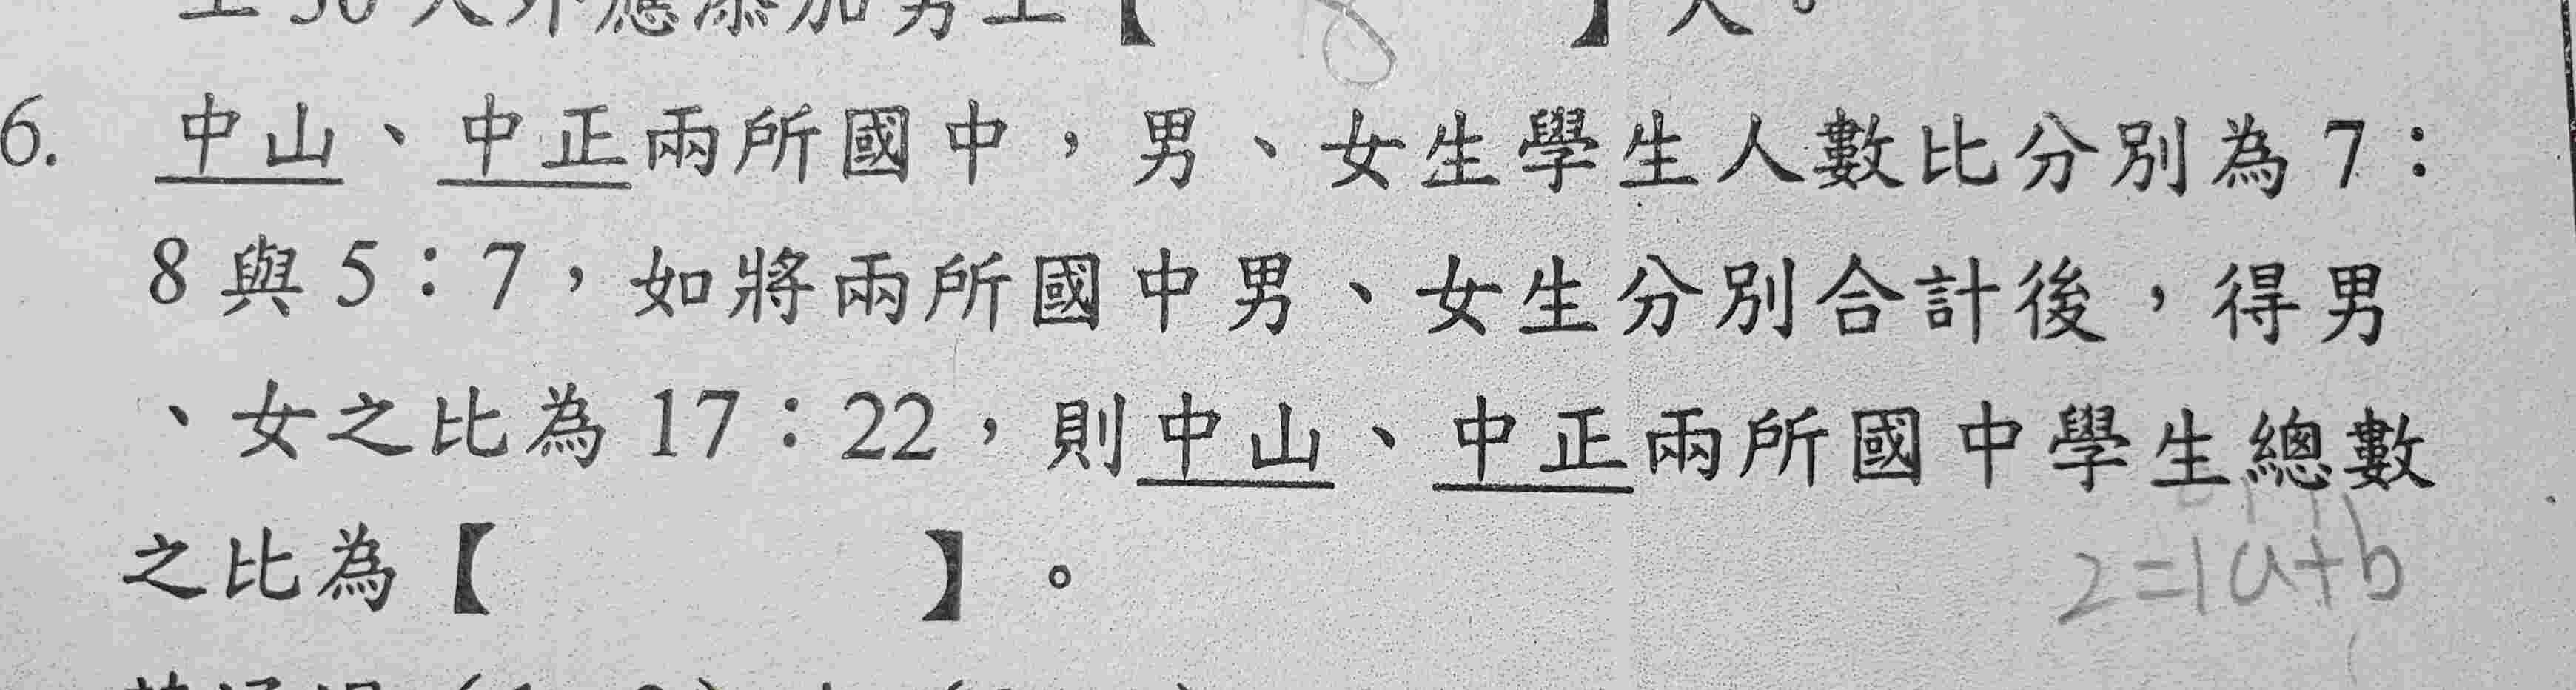 8
】人。
6. 中山、中正兩所國中，男、女生學生人數比分別為 7：
8 與 5：7，如將兩所國中男、女生分別合計後，得男
、女之比為 17：22，則中山、中正兩所國中學生總數
之比為【 】。
2=1a+b